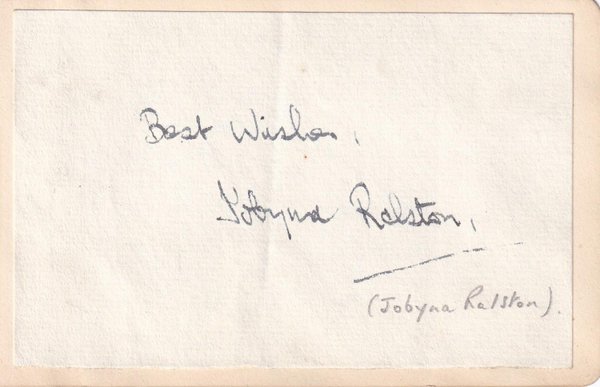 Best Wishes,
Jobyna Ralston,
(Jobyna Ralston).